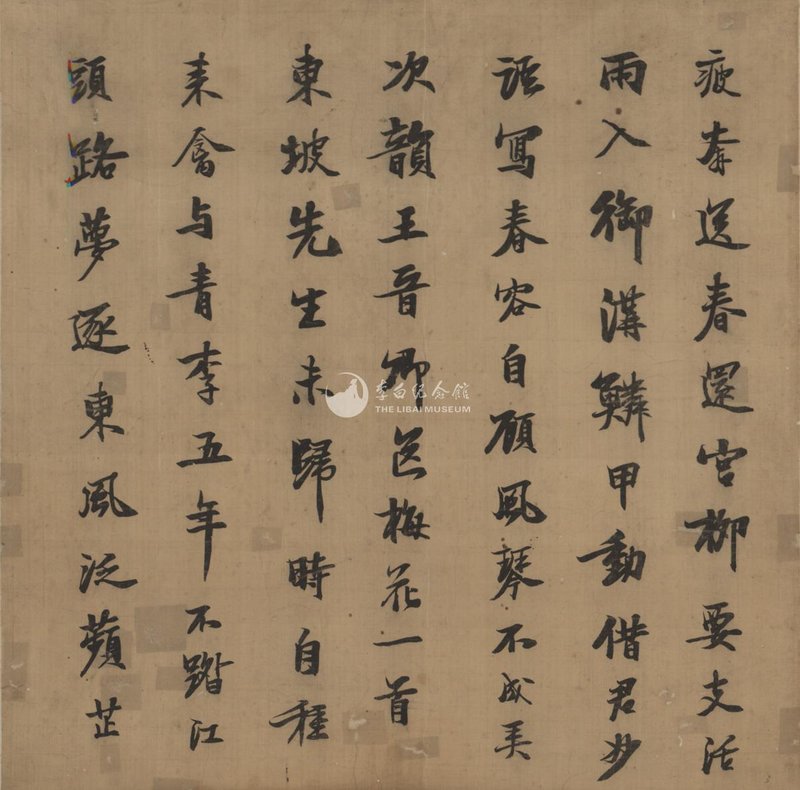 疲奔送春還宮柳要支活
雨入御溝鱗甲動借君妙
語寫春容自顧風琴不成弄
次韻王晋卿送梅花一首
東坡先生未歸時自種
来禽与青李五年不踏江
頭路夢逐東風泛蘋芷
李白纪念館
THE LIBAI MUSEUM